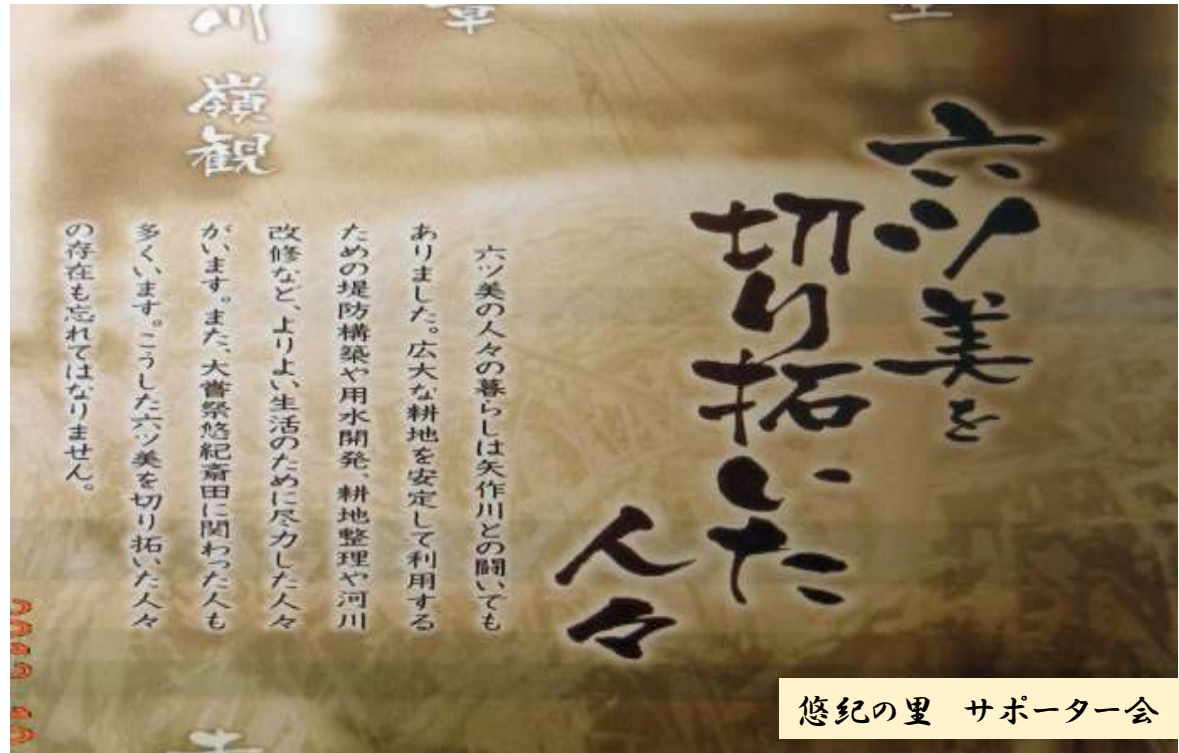 六ツ美を
切り拓いた
人々
六ツ美の人々の暮らしは矢作川との闘いでも
ありました。広大な耕地を安定して利用する
ための堤防構築や用水開発、耕地整理や河川
改修など、よりよい生活のために尽力した人々
がいます。また、大嘗祭悠紀斎田に関わった人も
多くいます。こうした六ツ美を切り拓いた人々
の存在も忘れてはなりません。
章
川 嶺観
悠紀の里 サポーター会